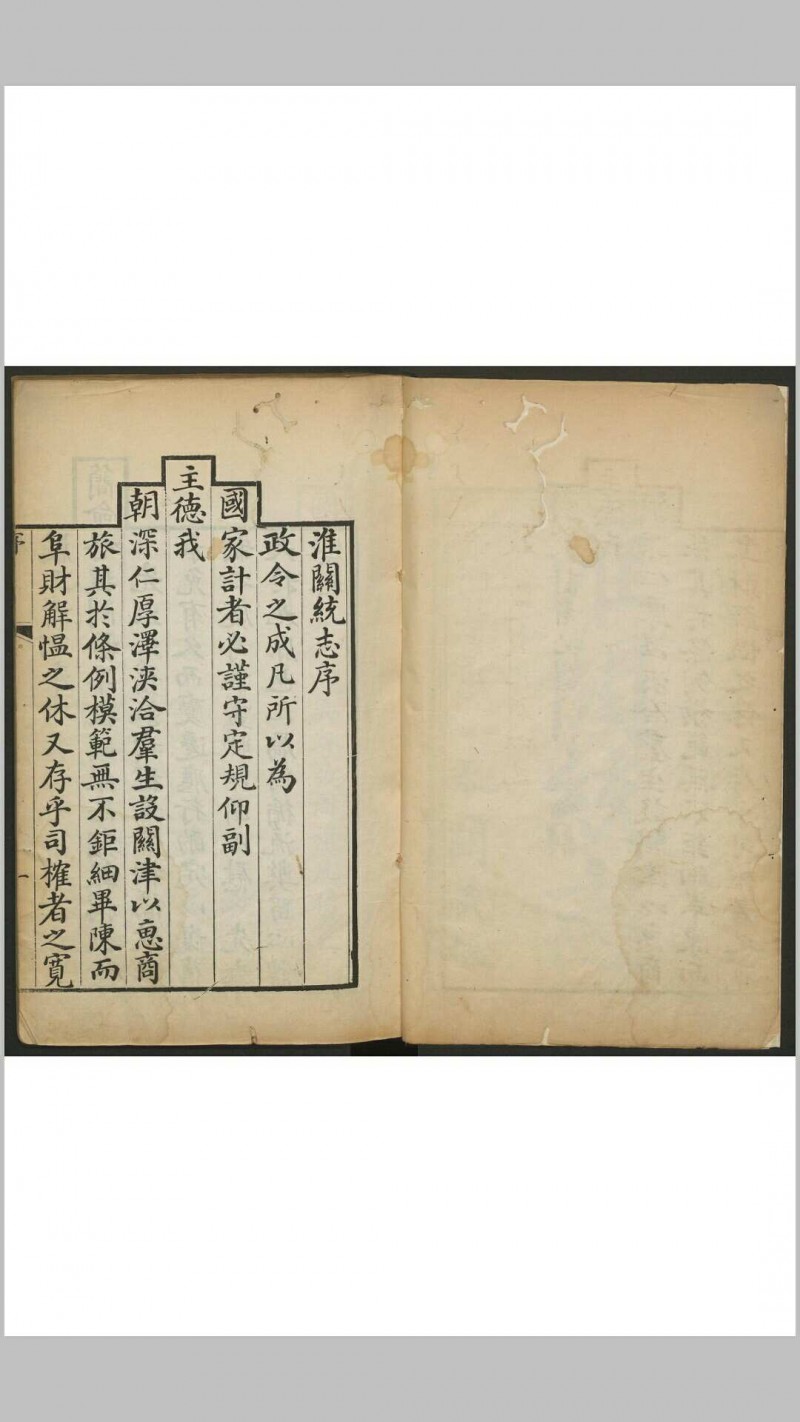 淮關統志序
政令之成凡所以為
國家計者必謹守定規仰副
主德我
朝深仁厚澤浹洽羣生設關津以惠商
旅其於條例模範無不鉅細畢陳而
阜財解愠之休又存乎司榷者之寬
一